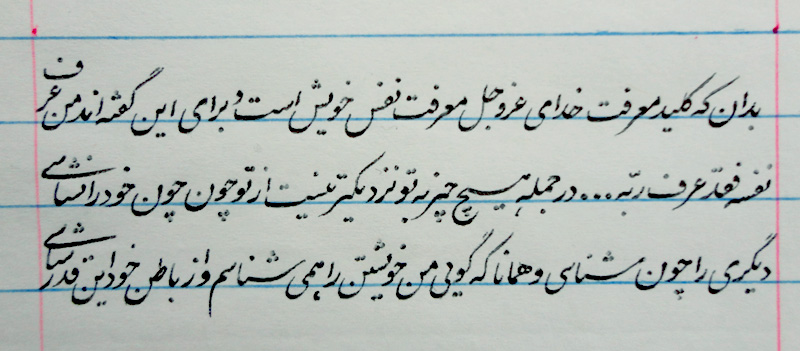 بدان که کلید معرفت خدای عزوجل معرفت نفس خویش است و برای این گفته اند من عرف
نفسه فقد عرف ربه... در جمله هیچ چیز به تو نزدیکتر نیست از تو چون چون خود را نشناسی
دیگری را چون شناسی و همانا که گویی من خویشتن را همی شناسم و از باطن خود این قدر شناسی